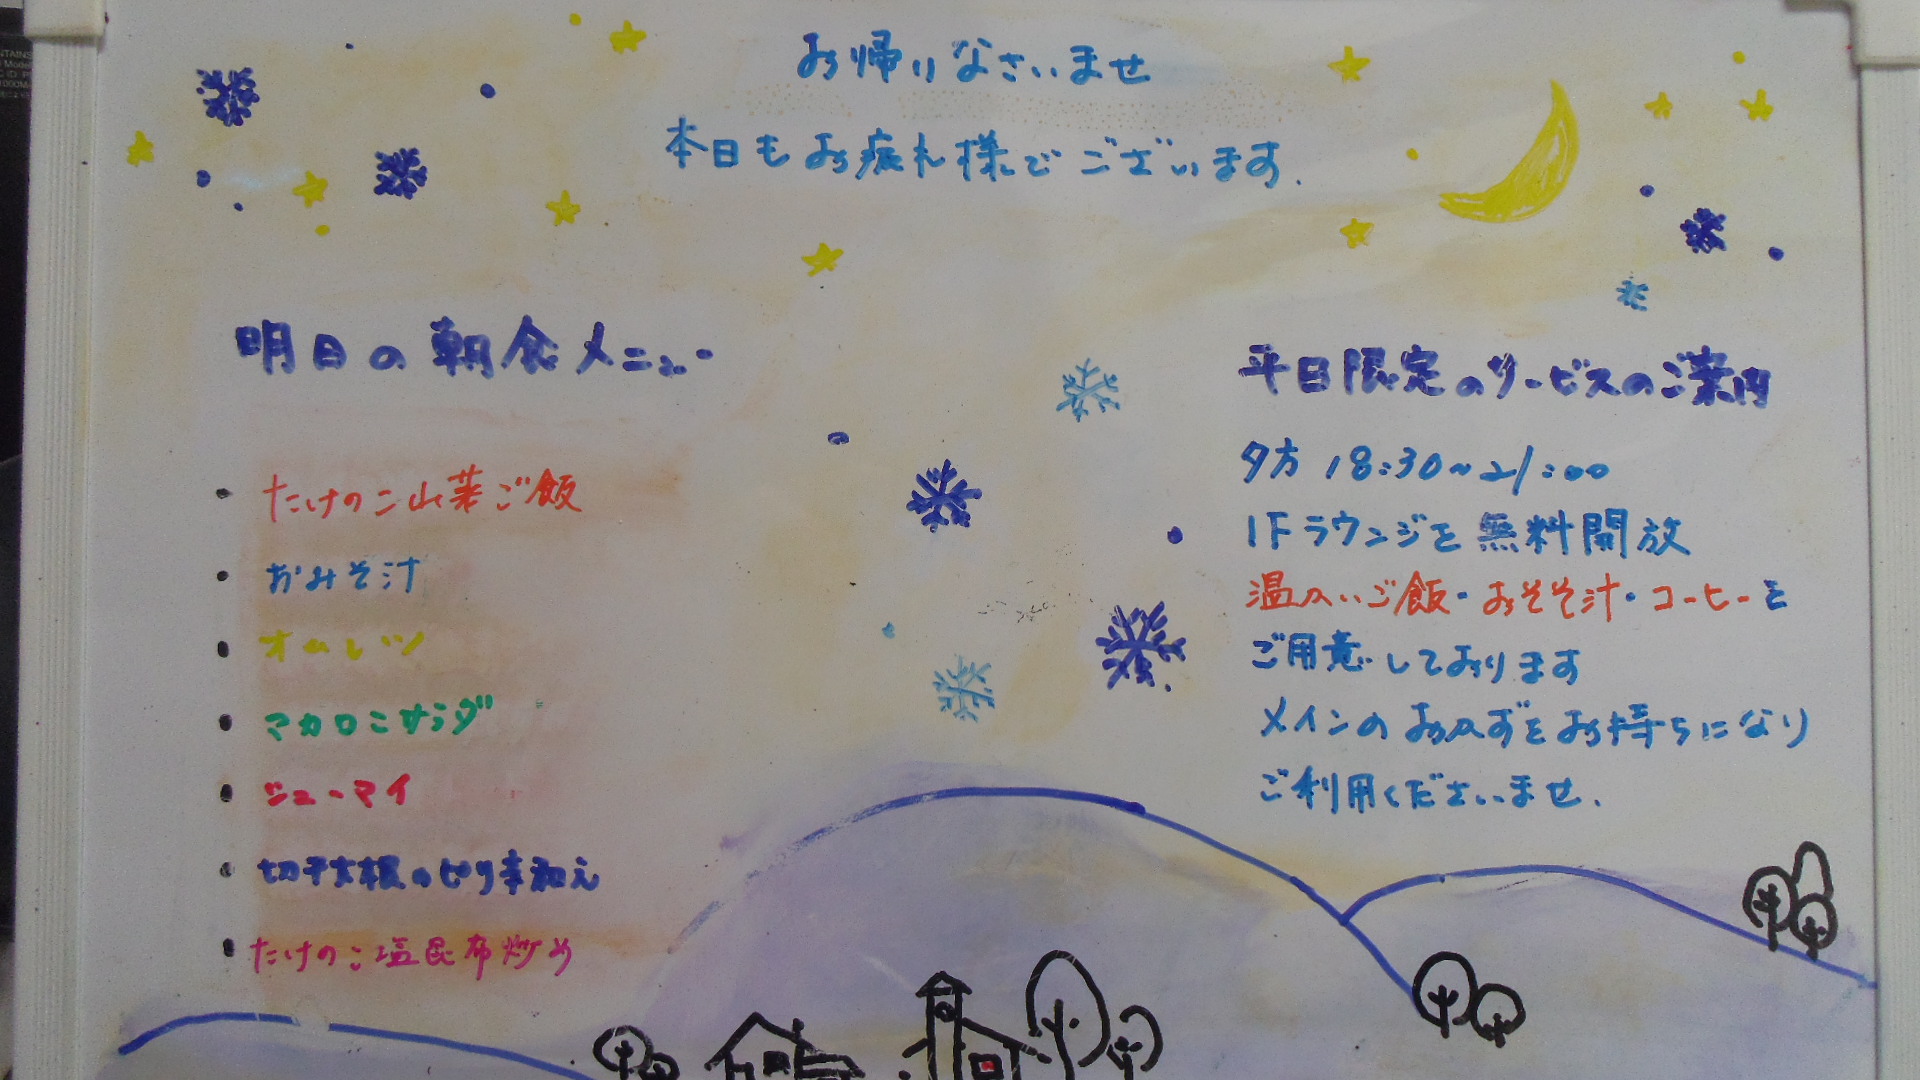 お帰りなさいませ
本日もお疲れ様でございます.
明日の朝食メニュー
・たけのこ山菜ご飯
・おみそ汁
・オムレツ
・マカロニサラダ
・シューマイ
・切干大根のピリ辛和え
・たけのこ塩昆布炒め
平日限定のサービスのご案内
夕方 18:30~21:00
1Fラウンジを無料開放
温かいご飯・おそそ汁・コーヒーを
ご用意しております
メインのおかずをお持ちになり
ご利用くださいませ.